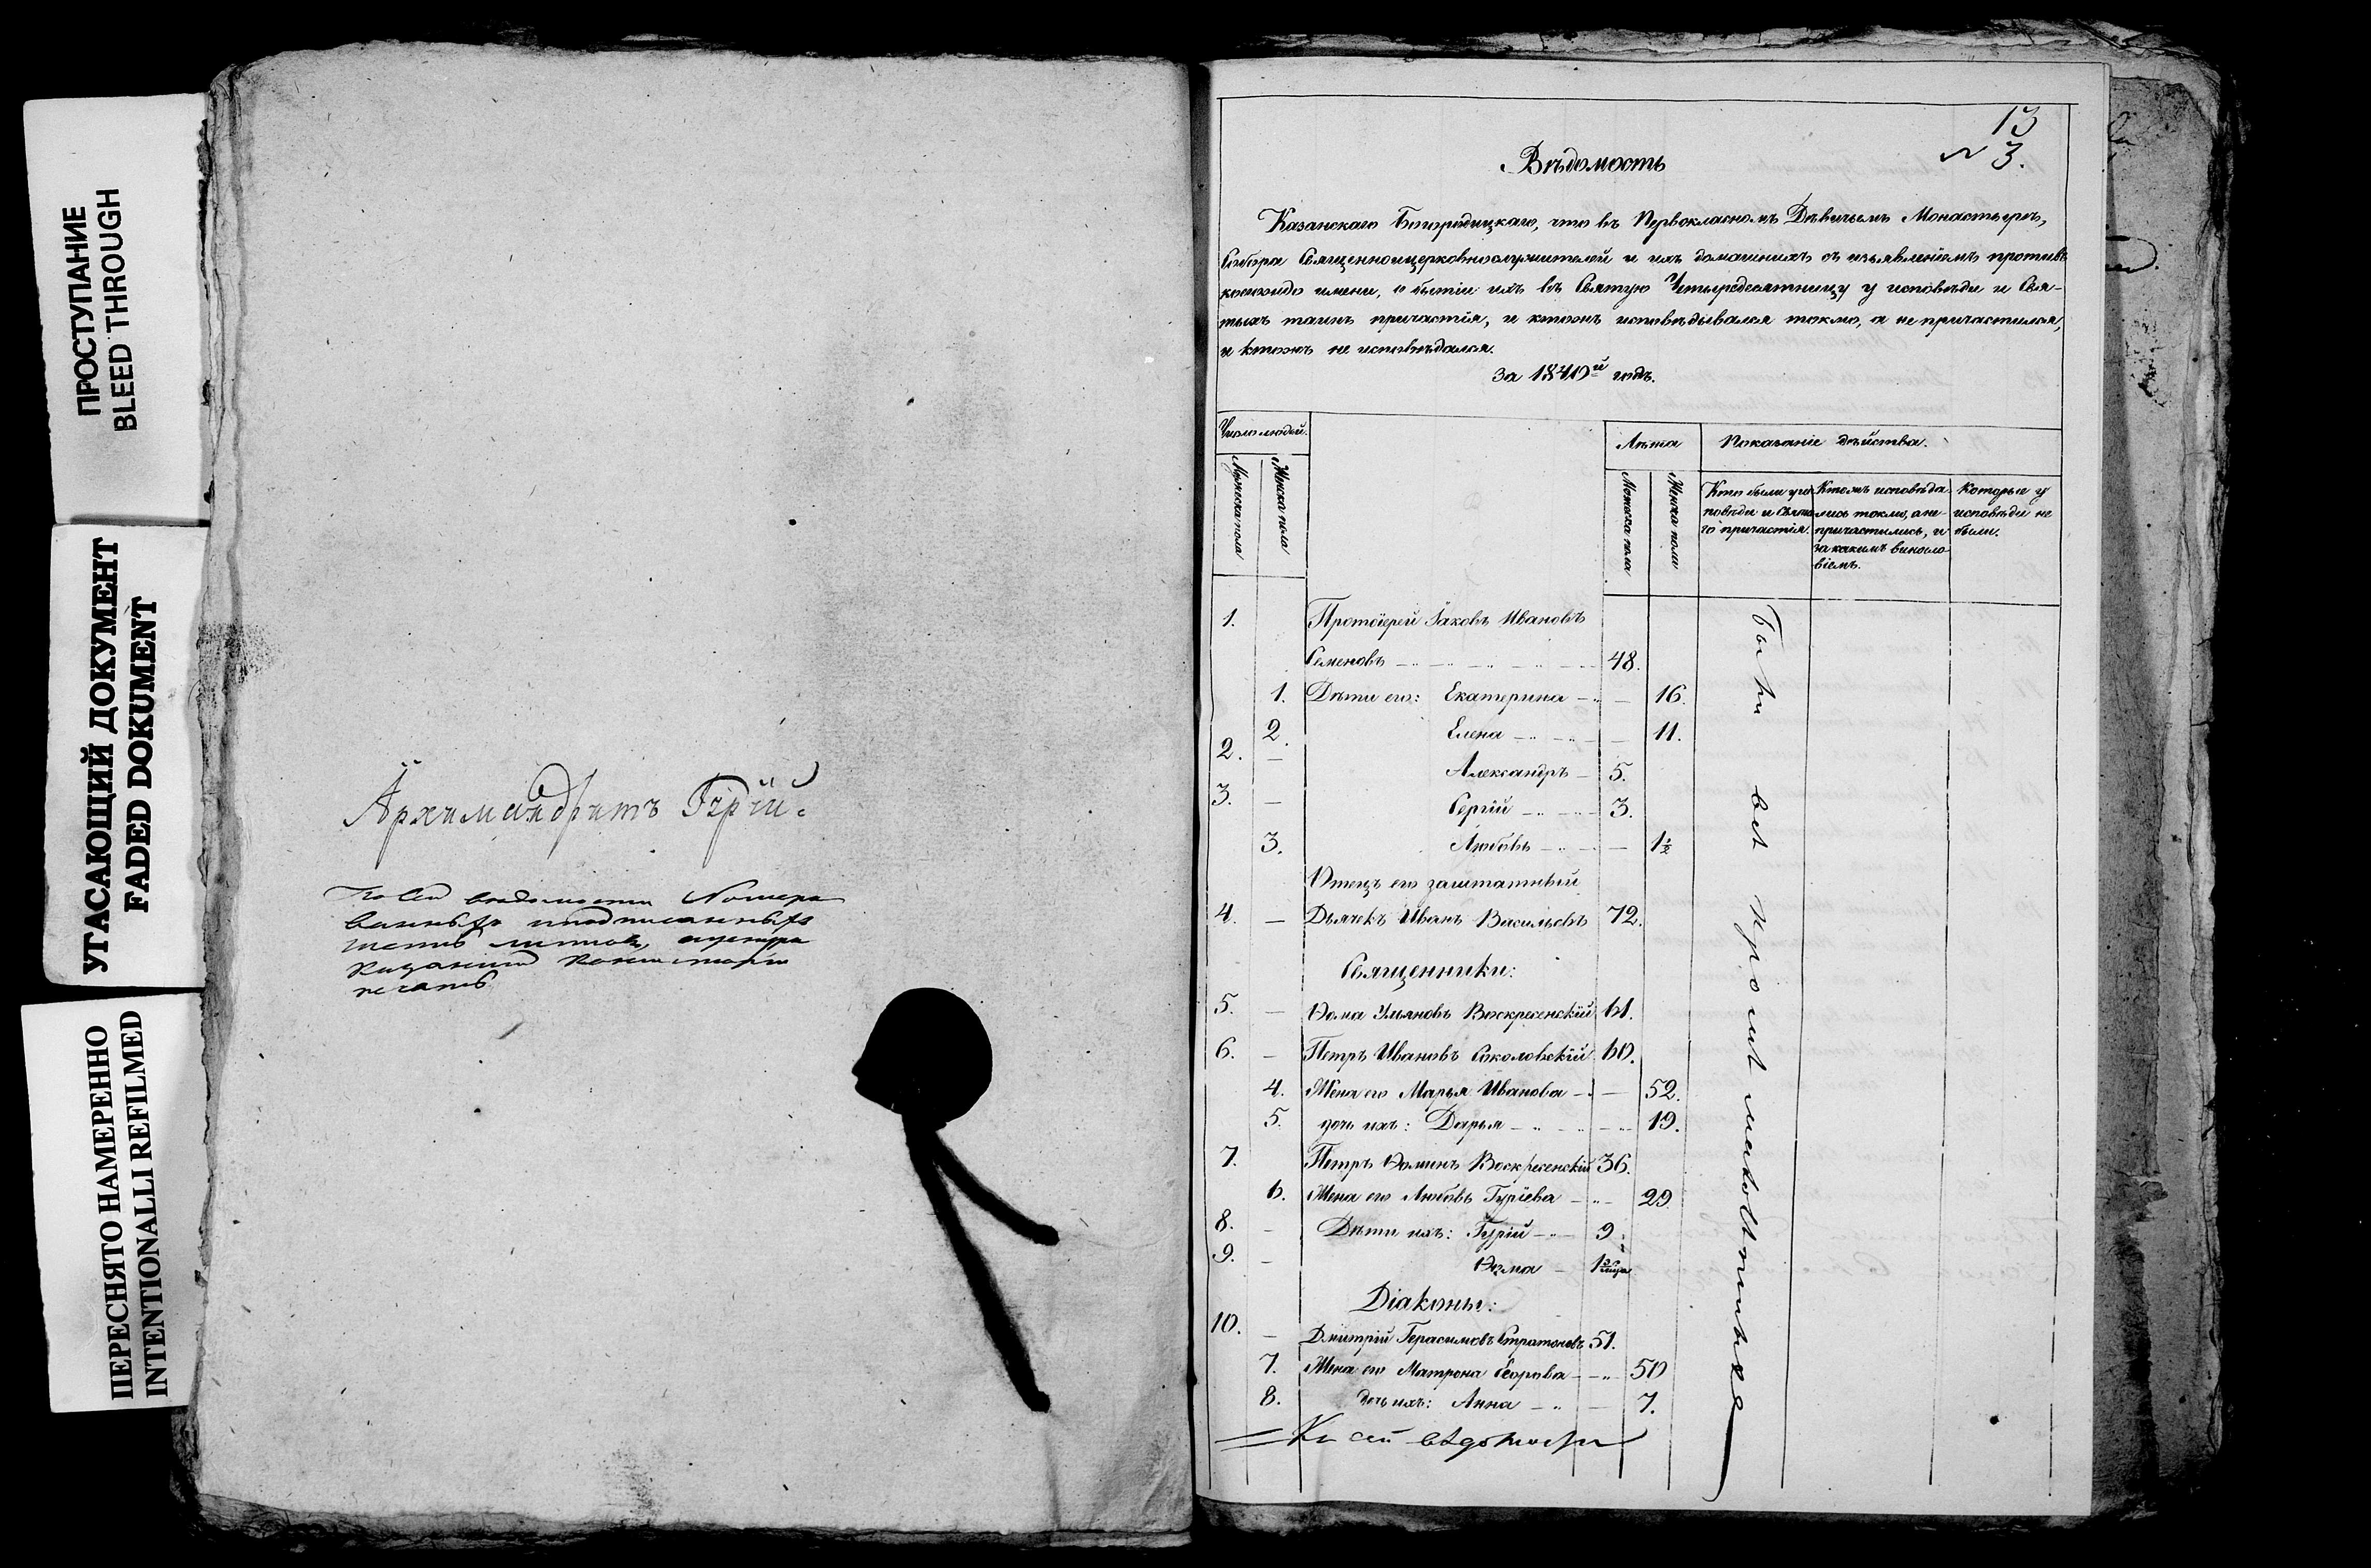 ПРОСТУПАНИЕ
BLEED THROUGH
УГАСАЮЩИЙ ДОКУМЕНТ
FADED DOKUMENT
ПЕРЕСНЯТО НАМЕРЕННО
INTENTIONALLI REFILMED
Архимандритъ Гурій.
13
N 3.
Вѣдомость
Казанскаго Богородицкаго, что въ Первокласномъ Дѣвичьемъ Монастырѣ,
Собора Священноицерковнослужителей и ихъ домашнихъ съ изъявленіемъ противъ
коегождо имени, о бытіи ихъ въ Святую Четыредесятницу у исповѣди и Свя-
тыхъ таинъ причастія, и ктожъ исповѣдывался токмо, а не причастился,
и ктожъ не исповѣдался.
За 1840й годъ.
Число людей.
Мужеска пола
Женска пола
Лѣта
Мужеска пола
Женска пола
Показаніе дѣйства.
Кто были у ис
повѣди и Свята
го причастія.
Ктожъ исповѣда
лись токмо, а не
причастились, и
за какимъ винсло
віемъ.
Которые у
исповѣди не
были.
1. Протоіерей Іаковъ Ивановъ
Семеновъ 48.
1. Дѣти его: Екатерина 16.
2. Елена 11.
2. Александръ 5.
3. Сергій 3.
3. Любовь 1½
Отецъ его заштатный
4. Дьячекъ Иванъ Васильевъ 72.
Священники:
5. Ѳома Ульяновъ Воскресенскій 61.
6. Петръ Ивановъ Соколовскій 60.
4. Жена его Марья Иванова 52.
5. дочь ихъ: Дарья 19.
7. Петръ Ѳоминъ Воскресенскій 36.
6. Жена его Любовь Гуріева 29.
8. Дѣти ихъ: Гурій 9.
9. Ѳома
Діаконы:
10. Дмитрій Герасимовъ Стратоновъ 51.
7. Жена его Матрона Егорова 50
8. дочь ихъ: Анна 7.
Были всѣ кромѣ малолѣтнихъ
Къ сей вѣдомости